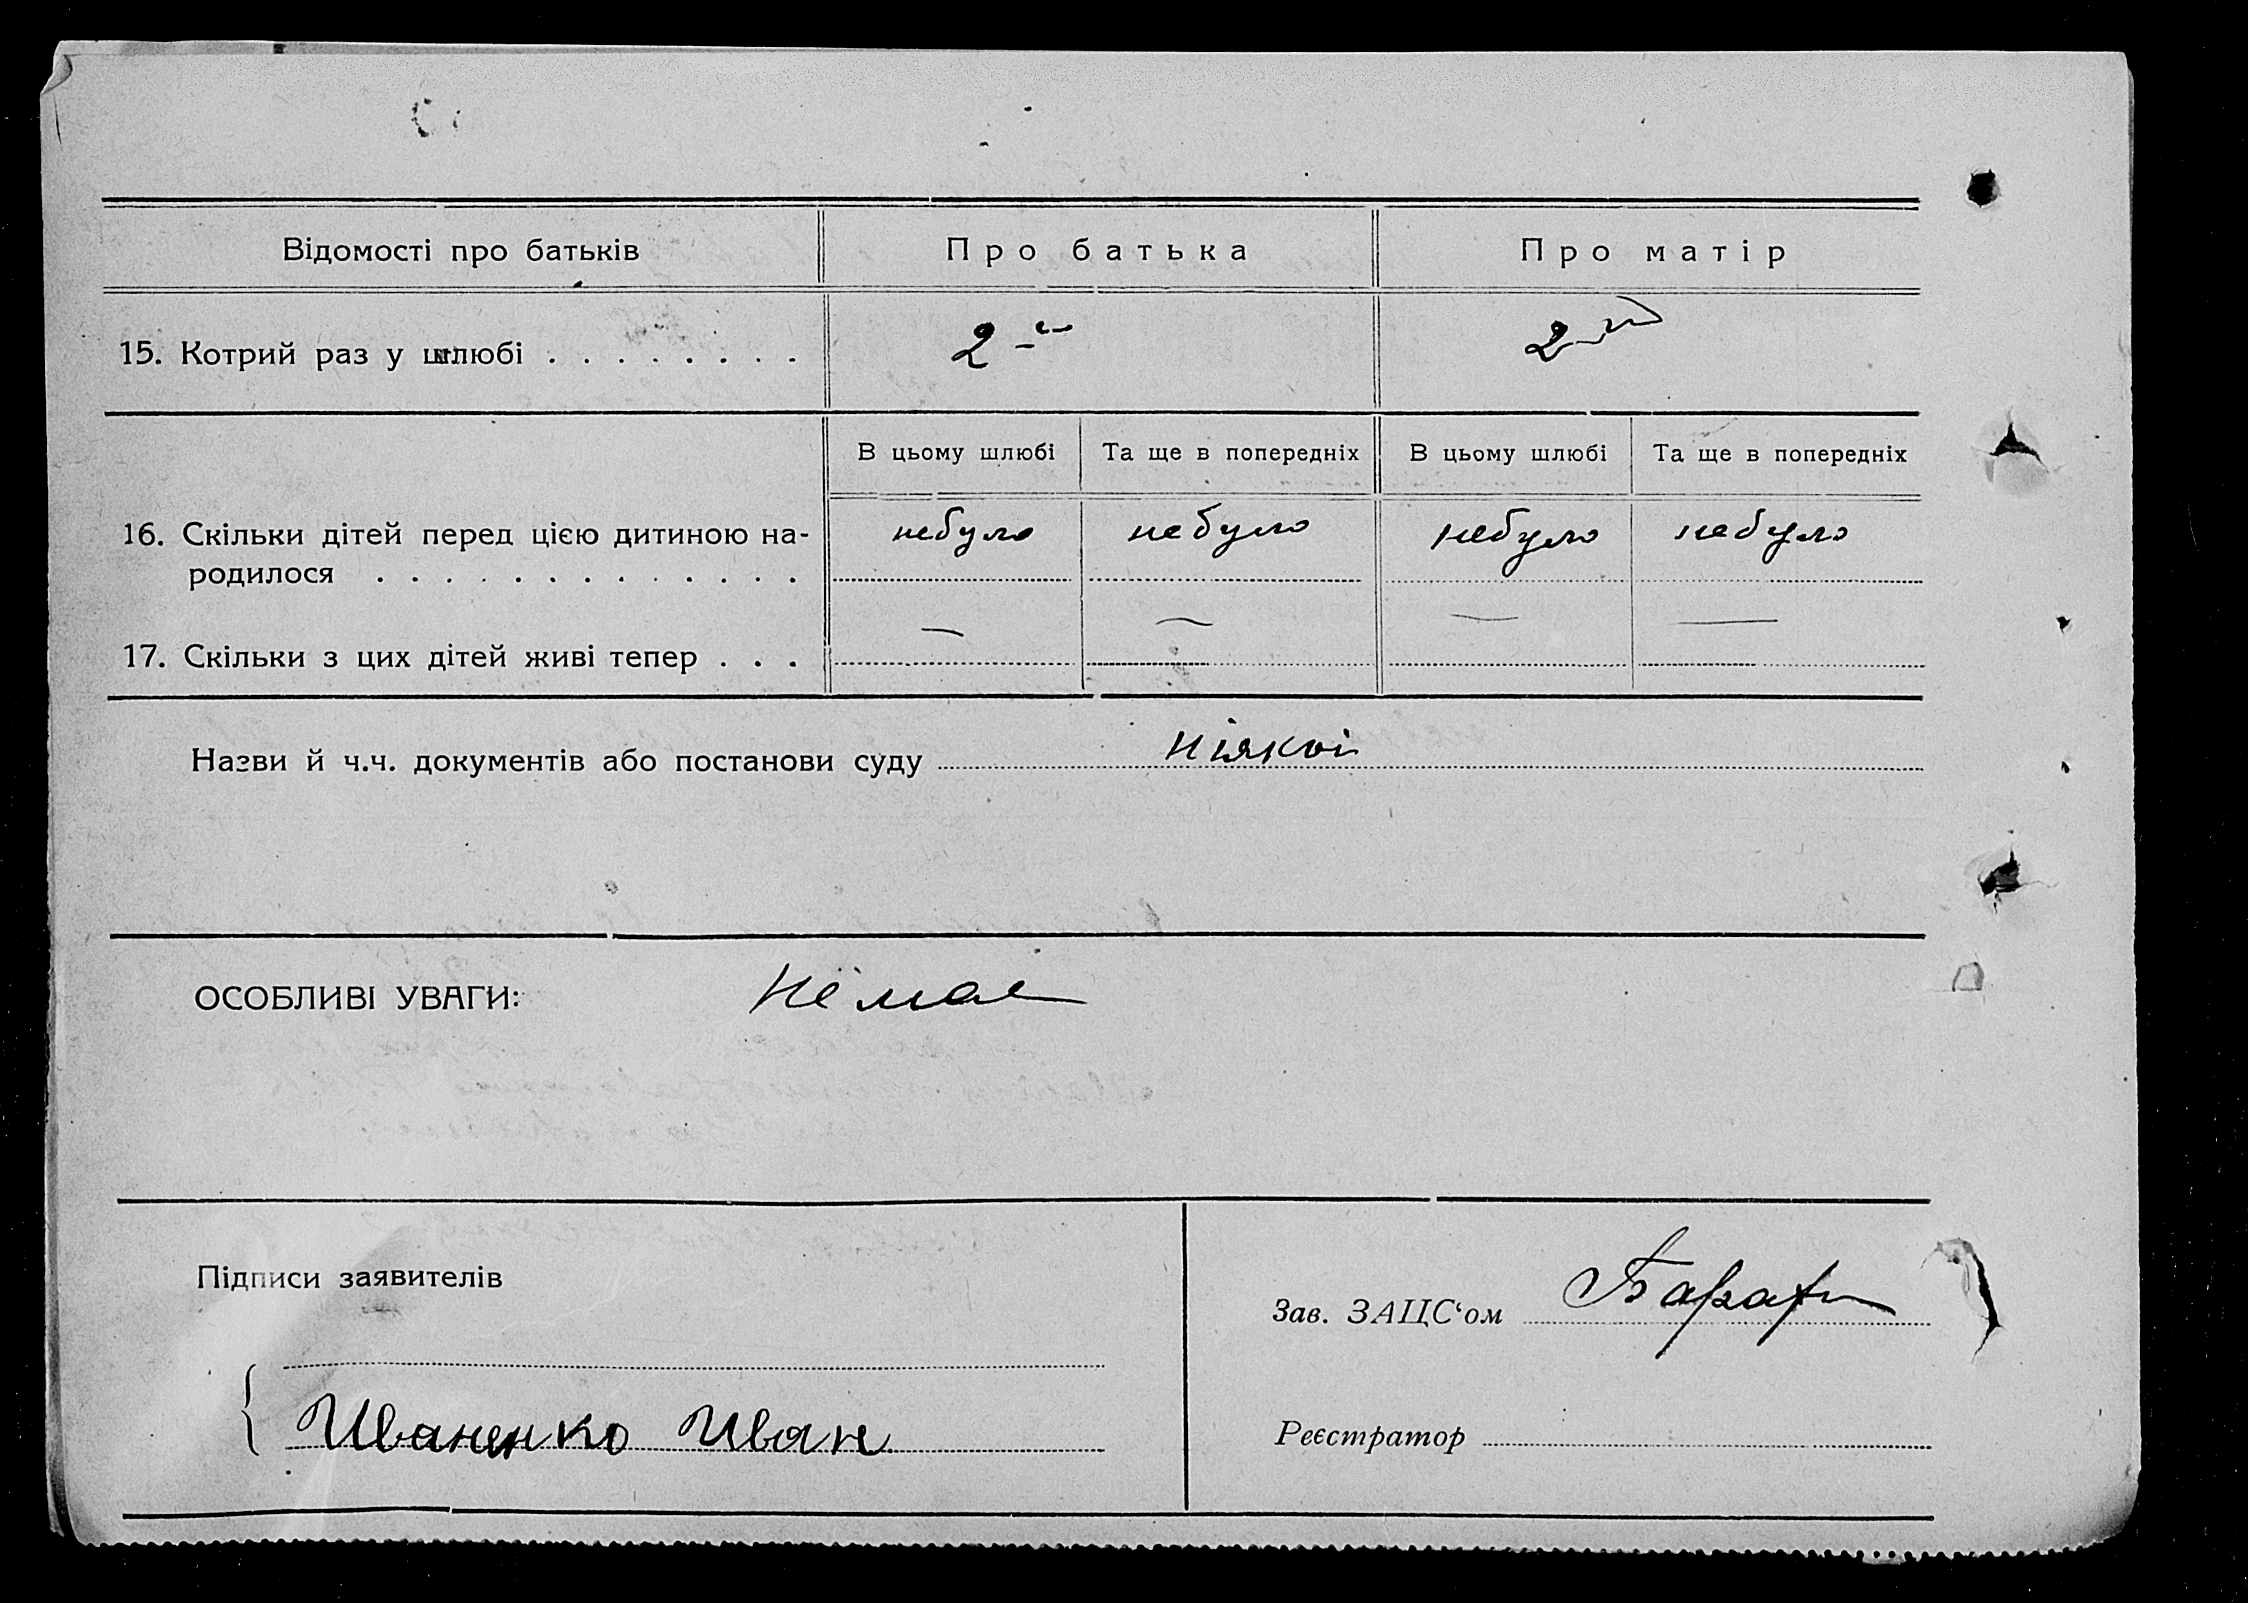 Відомості про батьків Про батька Про матір
15. Котрий раз у шлюбі . . . . . . . . 2 2
В цьому шлюбі Та ще в попередніх В цьому шлюбі Та ще в попередніх
16. Скільки дітей перед цією дитиною на- небуло небуло небуло небуло
родилося . . . . . . . . . . . . .
17. Скільки з цих дітей живі тепер . . . — — — —
Назви й ч.ч. документів або постанови суду ніякої
ОСОБЛИВІ УВАГИ: Немає
Підписи заявителів
Зав. ЗАЦС‘ом
Иваненко Иван
Реєстратор